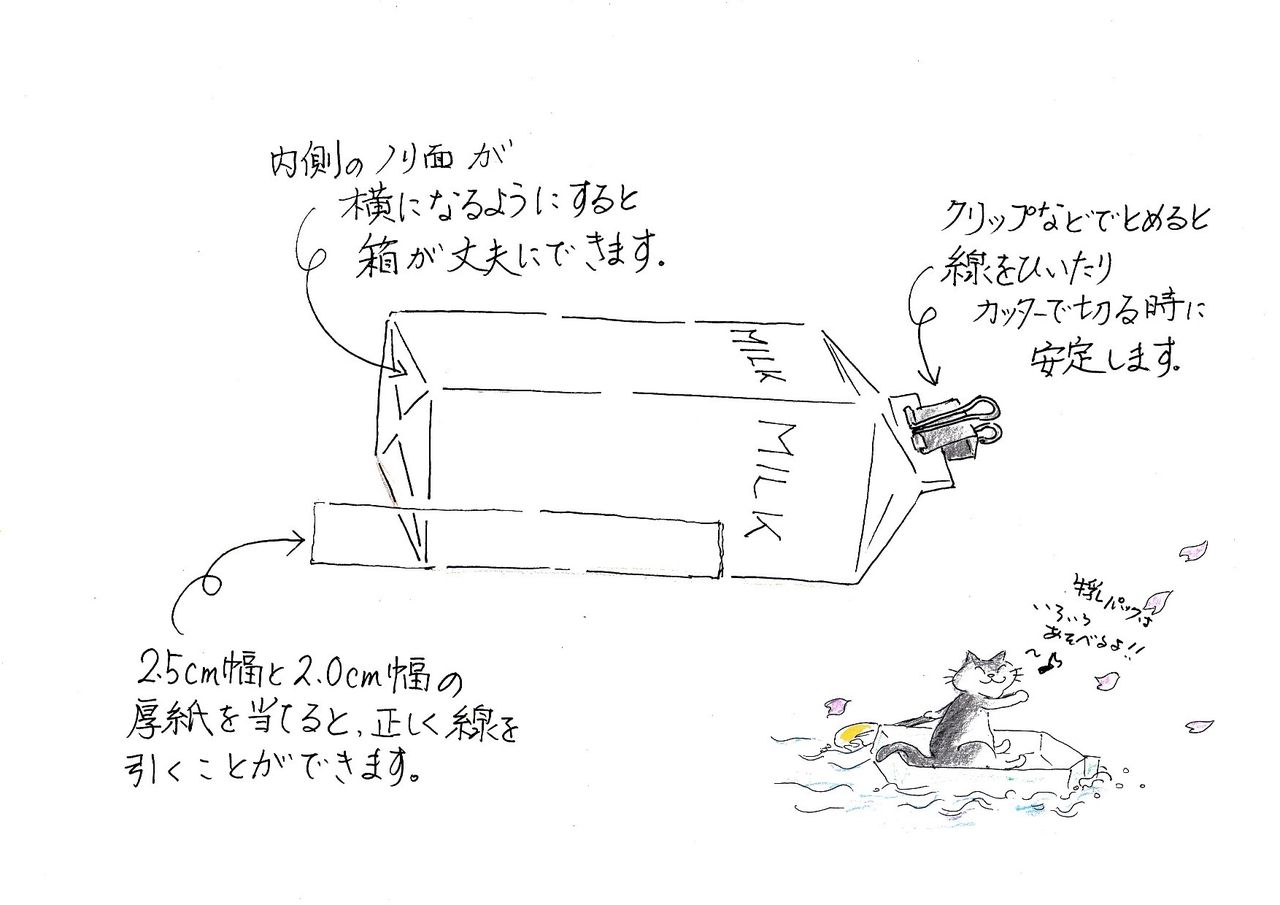 内側のノリ面が
横になるようにすると
箱が丈夫にできます.
クリップなどでとめると
線をひいたり
カッターで切る時に
安定します。
MILK
MILK
2.5cm幅と2.0cm幅の
厚紙を当てると、正しく線を
引くことができます。
牛乳パックは
いろいろ
あそべるよ!!
〜♪